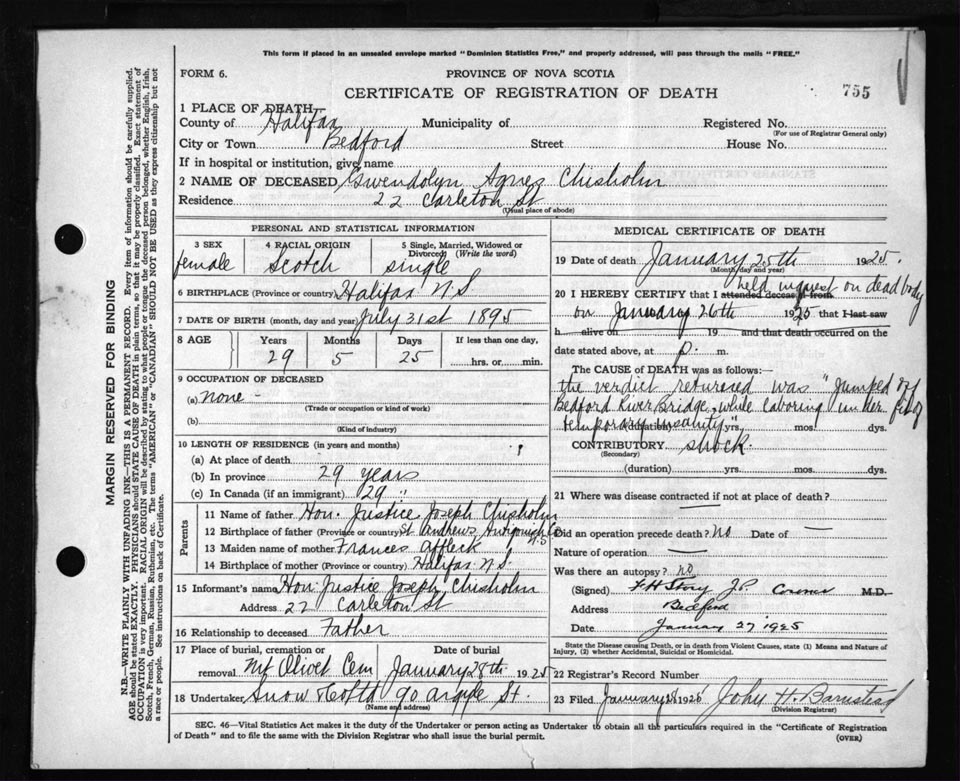 This form if placed in an unsealed envelope marked "Dominion Statistics Free," and properly addressed, will pass through the mails "FREE."
FORM 6.
PROVINCE OF NOVA SCOTIA
CERTIFICATE OF REGISTRATION OF DEATH
755
1 PLACE OF DEATH—
County of Halifax Municipality of Registered No.
(For use of Registrar General only)
City or Town Bedford Street House No.
If in hospital or institution, give name
2 NAME OF DECEASED Gwendolyn Agnes Chisholm
Residence 22 Carleton St
(Usual place of abode)
PERSONAL AND STATISTICAL INFORMATION
3 SEX 4 RACIAL ORIGIN 5 Single, Married, Widowed or Divorced (Write the word)
female Scotch single
6 BIRTHPLACE (Province or country) Halifax N.S
7 DATE OF BIRTH (month, day and year) July 31st 1895
8 AGE Years Months Days If less than one day,
29 5 25 hrs. or min.
9 OCCUPATION OF DECEASED
(a) none -
(Trade or occupation or kind of work)
(b)
(Kind of industry)
10 LENGTH OF RESIDENCE (in years and months)
(a) At place of death
(b) In province 29 years
(c) In Canada (if an immigrant) 29 "
Parents
11 Name of father Hon. Justice Joseph Chisholm
12 Birthplace of father (Province or country) St Andrews Antigonish Co N.S
13 Maiden name of mother Frances Affleck
14 Birthplace of mother (Province or country) Halifax N.S.
15 Informant's name Hon Justice Joseph Chisholm
Address 22 Carleton St
16 Relationship to deceased Father
17 Place of burial, cremation or removal Date of burial
Mt Olivet Cem January 28th 1925
18 Undertaker Snow & Co Ltd 90 Argyle St.
(Name and address)
MEDICAL CERTIFICATE OF DEATH
19 Date of death January 25th 1925.
(Month, day and year)
held inquest on dead body
20 I HEREBY CERTIFY that I attended deceased from
on January 26th 1925 that I last saw
h alive on 19 and that death occurred on the
date stated above, at p. m.
The CAUSE of DEATH was as follows:
the verdict returned was "Jumped off
Bedford River Bridge while laboring under fit of
temporary insanity"
(duration) yrs. mos. dys.
CONTRIBUTORY shock
(Secondary)
(duration) yrs. mos. dys.
21 Where was disease contracted if not at place of death?
Did an operation precede death? No Date of —
Nature of operation —
Was there an autopsy? no
(Signed) J.P. Coroner M.D.
Address Bedford
Date January 27 1925
State the Disease causing Death, or in death from Violent Causes, state (1) Means and Nature of Injury, (2) whether Accidental, Suicidal or Homicidal.
22 Registrar's Record Number
23 Filed January 28 1925 John H. Barnstead
(Division Registrar)
SEC. 46—Vital Statistics Act makes it the duty of the Undertaker or person acting as Undertaker to obtain all the particulars required in the "Certificate of Registration
of Death" and to file the same with the Division Registrar who shall issue the burial permit.
(OVER)
MARGIN RESERVED FOR BINDING
N.B.—WRITE PLAINLY WITH UNFADING INK—THIS IS A PERMANENT RECORD. Every item of information should be carefully supplied.
AGE should be stated EXACTLY. PHYSICIANS should STATE CAUSE OF DEATH in plain terms, so that it may be properly classified. Exact statement of
OCCUPATION is very important. RACIAL ORIGIN will be described by stating to what people or tongue the deceased person belonged, whether English, Irish,
Scotch, French, German, Russian, Ruthenian, etc. The terms "AMERICAN" or "CANADIAN" SHOULD NOT BE USED as they express citizenship but not
a race or people. See instructions on back of Certificate.